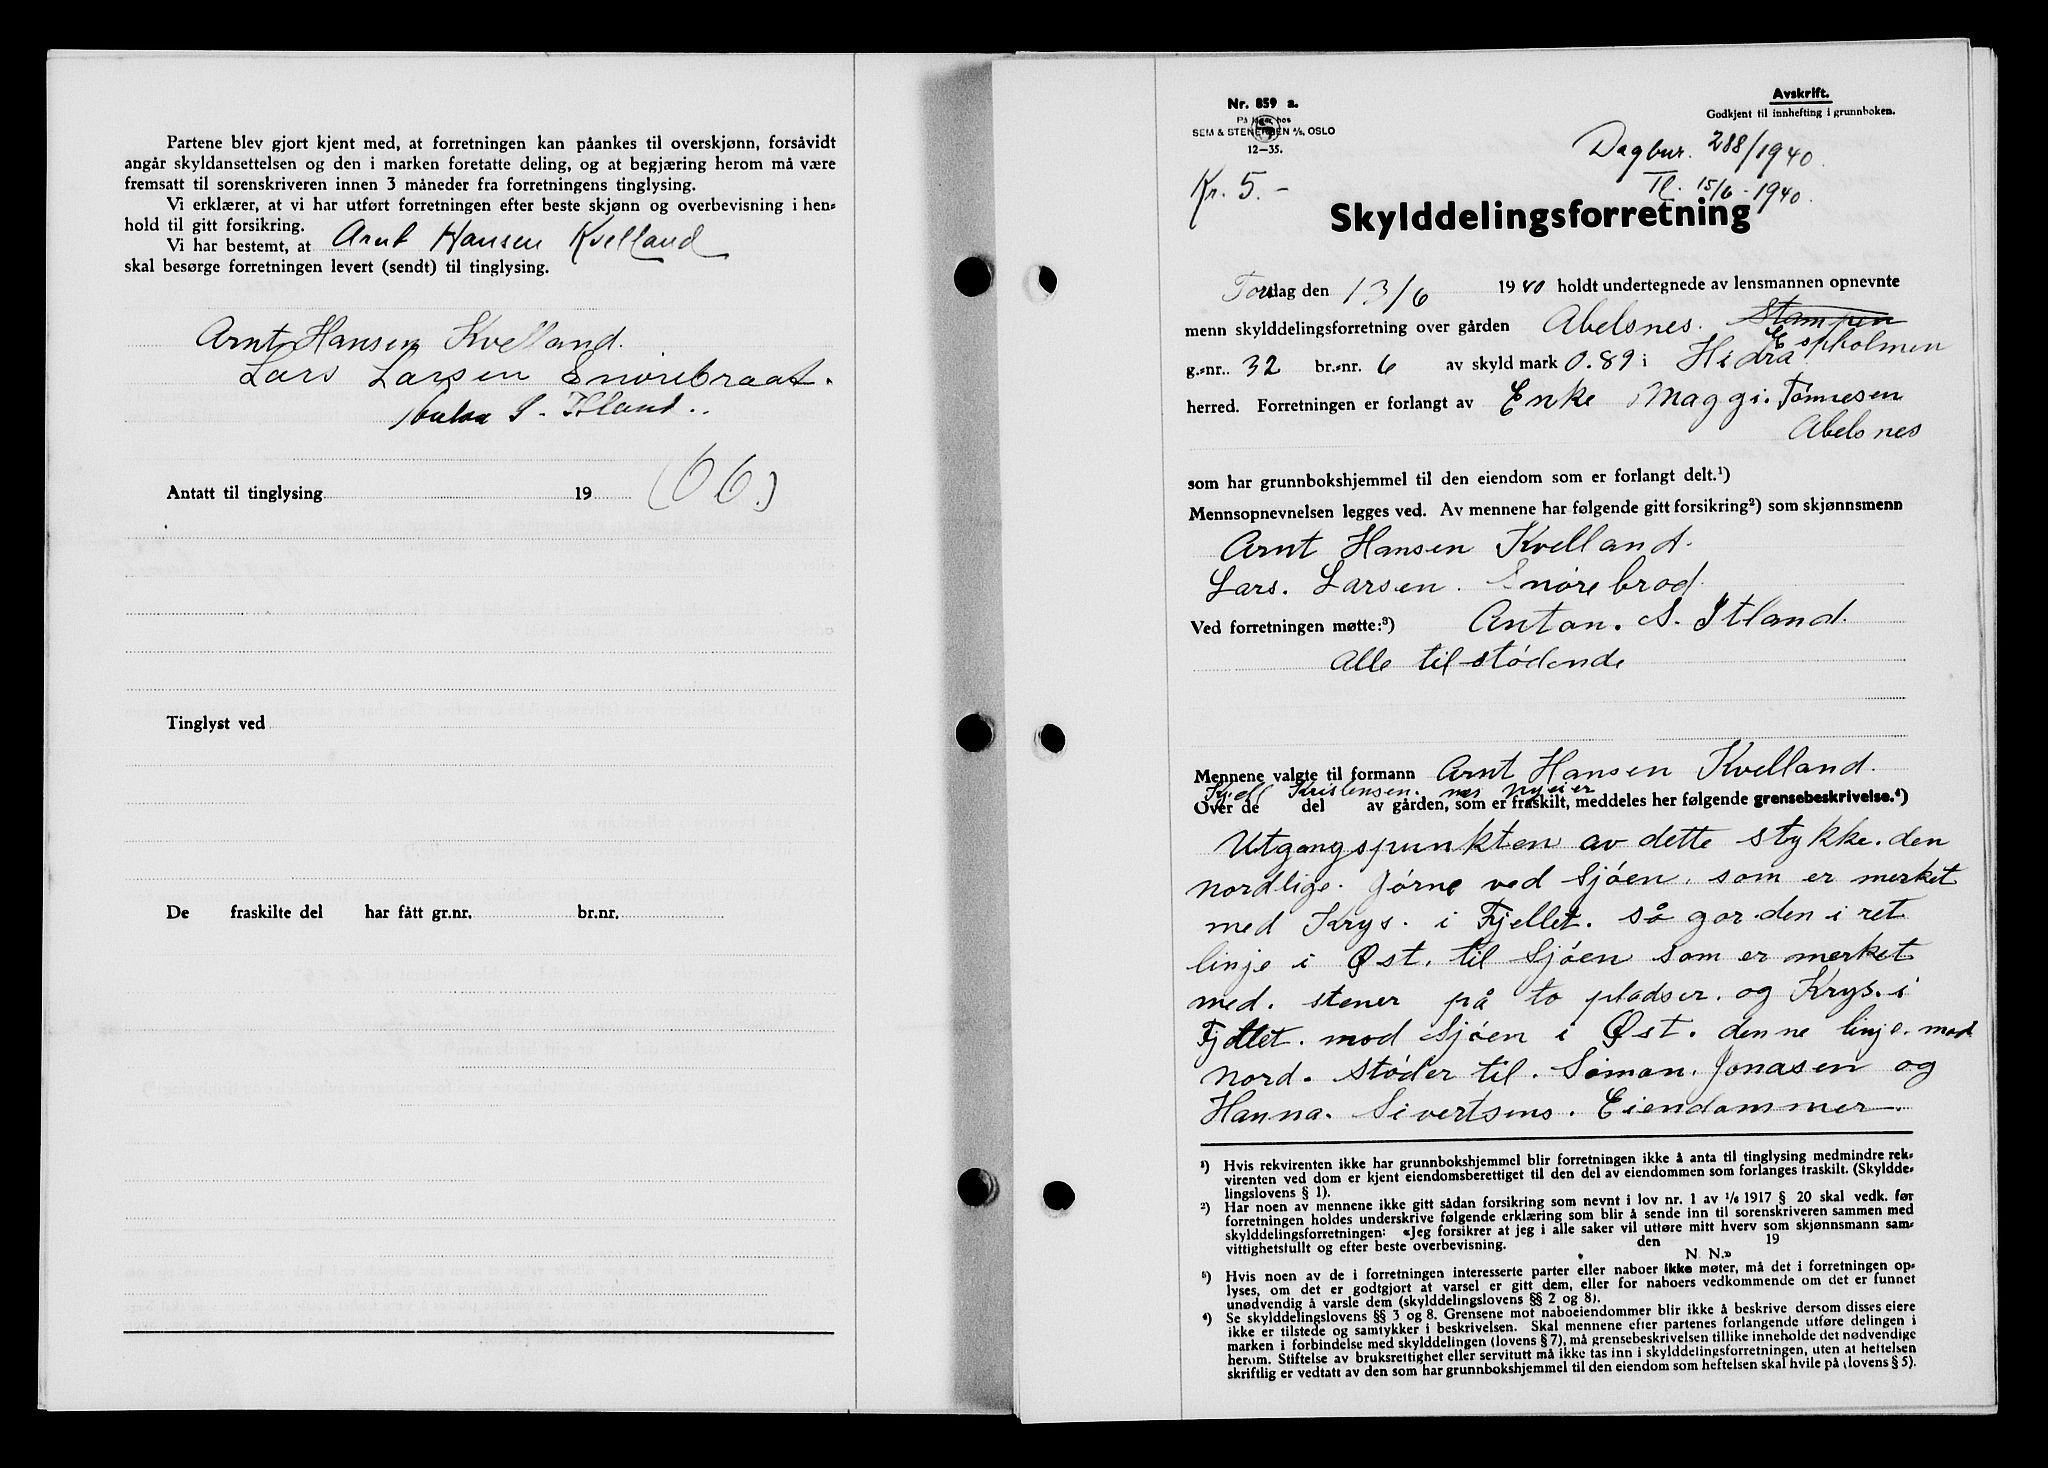 Partene blev gjort kjent med, at forretningen kan påankes til overskjønn, forsåvidt
angår skyldansettelsen og den i marken foretatte deling, og at begjæring herom må være
fremsatt til sorenskriveren innen 3 måneder fra forretningens tinglysing.
Vi erklærer, at vi har utført forretningen efter beste skjønn og overbevisning i hen-
hold til gitt forsikring.
Vi har bestemt, at Arnt Hansen Kvelland
skal besørge forretningen levert (sendt) til tinglysing.
Arnt Hansen Kvelland.
Lars Larsen Snørebraat.
S. Itland..
Antatt til tinglysing 19 (66.)
Tinglyst ved
De fraskilte del har fått gr.nr. br.nr.
Nr. 859 a.
På lager hos
SEM & STENERSEN A/S, OSLO
12-35.
Avskrift.
Godkjent til innhefting i grunnboken.
Dagbnr. 288/1940.
Tl. 15/6-1940.
Kr. 5.-
Skylddelingsforretning
Torsdag den 13/6 1940 holdt undertegnede av lensmannen opnevnte
menn skylddelingsforretning over gården Abelsnes. Stampen
Espholmen
g.-nr. 32 br.-nr. 6 av skyld mark 0.89 i Hidra
herred. Forretningen er forlangt av Enke Maggi. Tønnesen
Abelsnes
som har grunnbokshjemmel til den eiendom som er forlangt delt.¹)
Mennsopnevnelsen legges ved. Av mennene har følgende gitt forsikring²) som skjønnsmenn
Arnt Hansen Kvelland.
Lars. Larsen. Snørebrod.
Ved forretningen møtte:³) Anton. S. Itland.
Alle tilstødende
Mennene valgte til formann Arnt Hansen Kvelland.
Kjell Kristensen. nyeier
Over de del av gården, som er fraskilt, meddeles her følgende grensebeskrivelse.⁴)
Utgangspunkten av dette stykke. den
nordlige. Jørne ved Sjøen. som er merket
med Krys. i Fjellet. så gar den i ret
linje i Øst. til Sjøen som er merket
med. stener på to pladser. og Krys. i
Fjellet. mod Sjøen i Øst. denne linje. mod
Nord. støder til. Simon. Jonasen og
Hanna. Sivertsens. Eiendommer.
¹) Hvis rekvirenten ikke har grunnbokshjemmel blir forretningen ikke å anta til tinglysing medmindre rek-
virenten ved dom er kjent eiendomsberettiget til den del av eiendommen som forlanges fraskilt. (Skyldde-
lingslovens § 1).
²) Har noen av mennene ikke gitt sådan forsikring som nevnt i lov nr. 1 av 1/6 1917 § 20 skal vedk. før
forretningen holdes underskrive følgende erklæring som blir å sende inn til sorenskriveren sammen med
skylddelingsforretningen: «Jeg forsikrer at jeg i alle saker vil utføre mitt hverv som skjønnsmann sam-
vittighetsfullt og efter beste overbevisning. den 19
N. N.»
³) Hvis noen av de i forretningen interesserte parter eller naboer ikke møter, må det i forretningen op-
lyses, om det er godtgjort at varsel er gitt dem, eller for naboers vedkommende om det er funnet
unødvendig å varsle dem (skylddelingslovens §§ 2 og 8).
⁴) Se skylddelingslovens §§ 3 og 8. Grensene mot naboeiendommer blir ikke å beskrive dersom disses eiere
ikke er tilstede og samtykker i beskrivelsen. Skal mennene efter partenes forlangende utføre delingen i
marken i forbindelse med skylddelingen (lovens § 7), må grensebeskrivelsen tillike inneholde det nødvendige
herom. Stiftelse av bruksrettighet eller servitutt må ikke tas inn i skylddelingsforretningen, uten at heftelsen
skriftlig er vedtatt av den som har grunnbokshjemmel til den eiendom som heftelsen skal hvile på (lovens § 5).